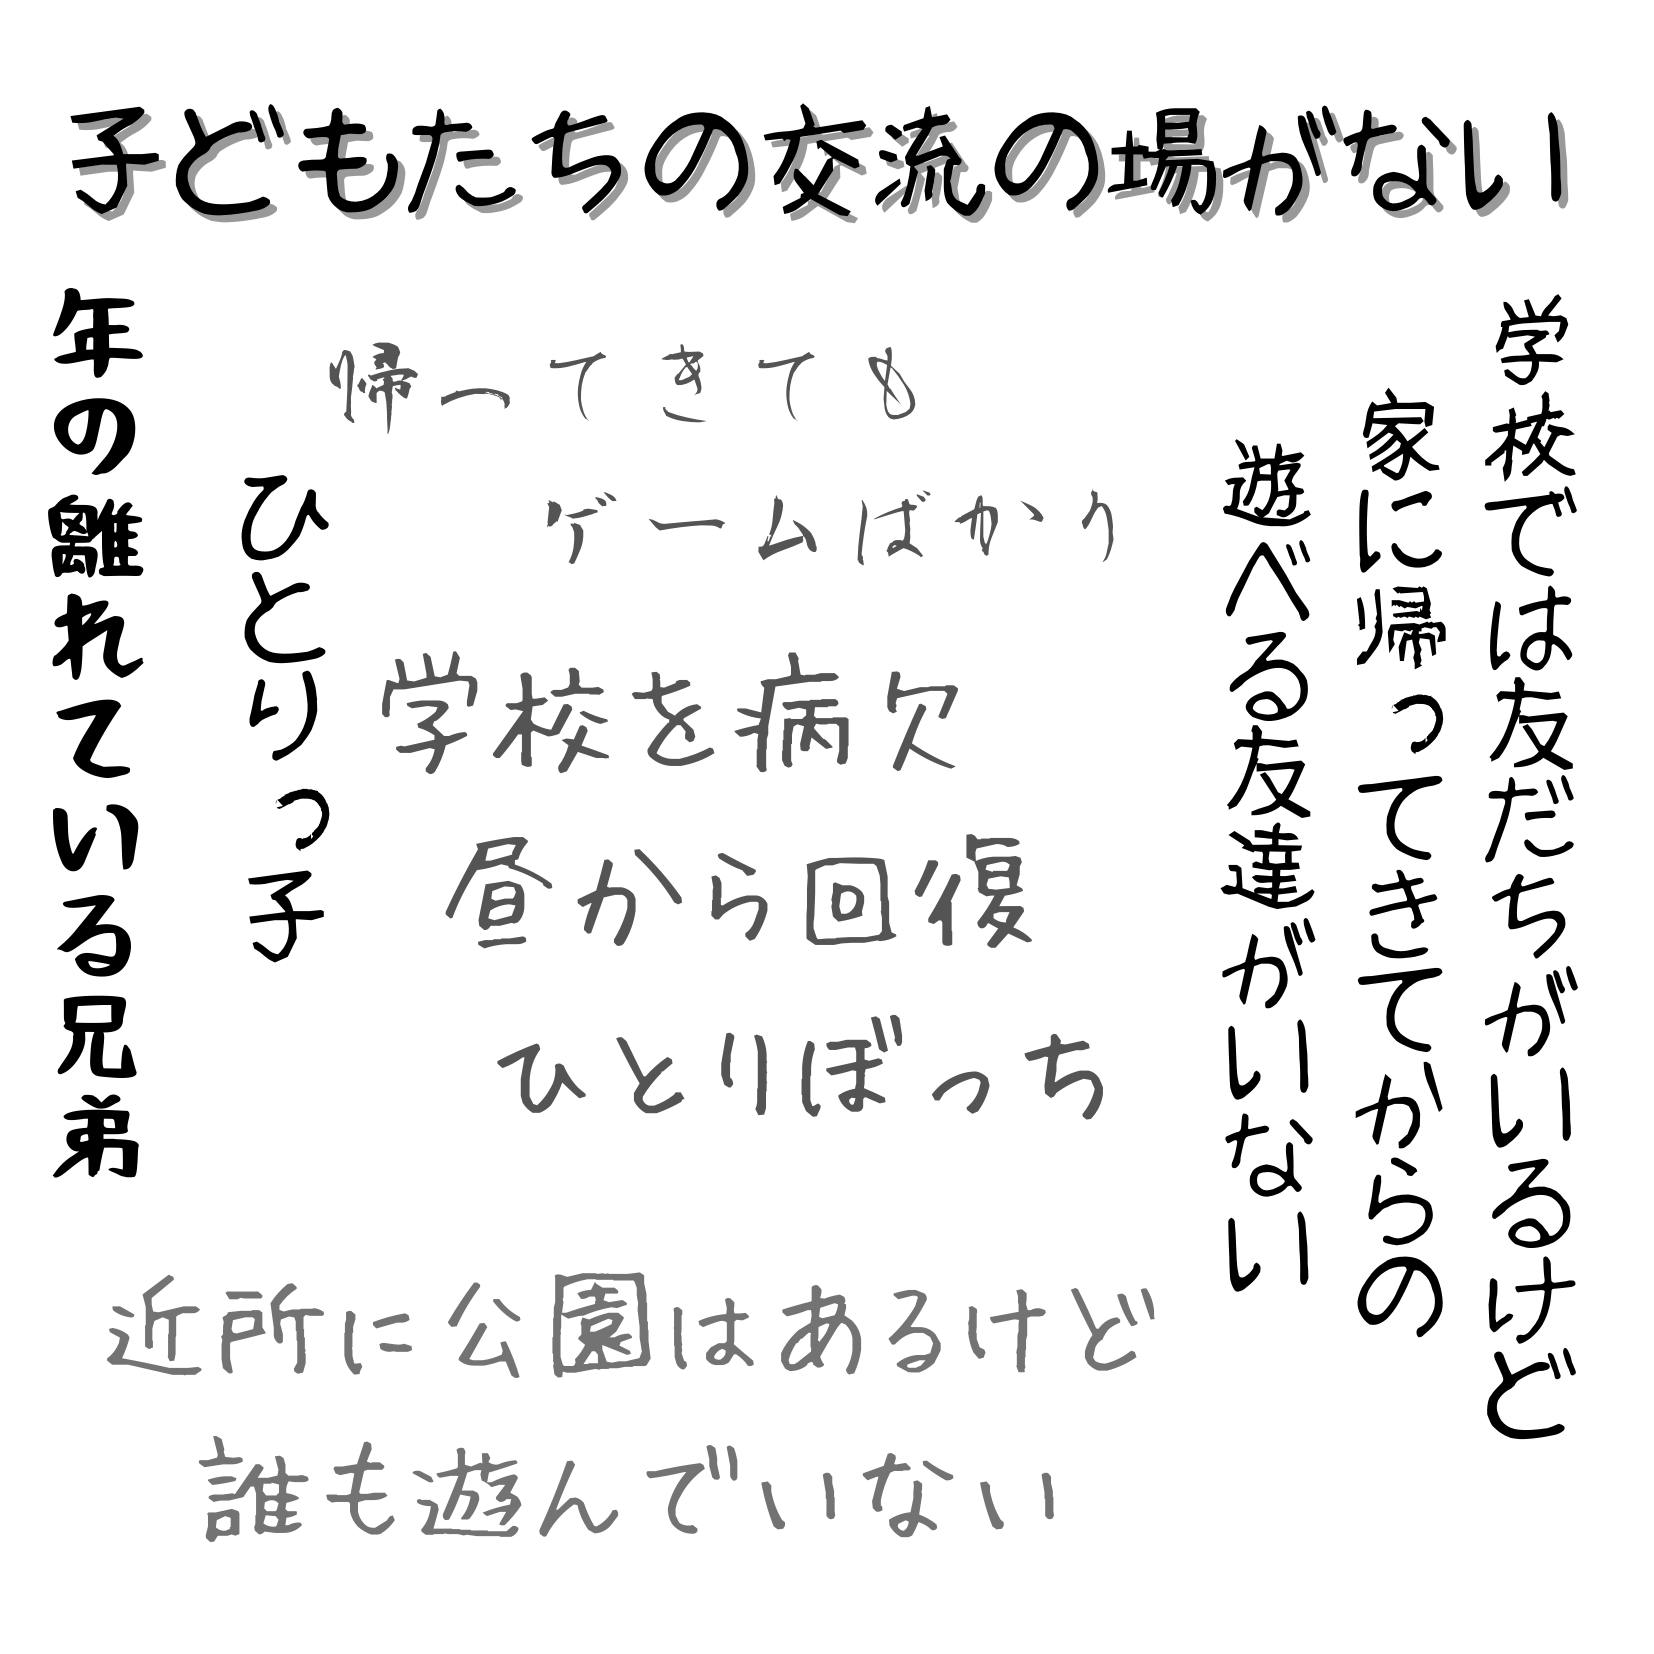 子どもたちの交流の場がない
学校では友だちがいるけど
家に帰ってきてからの
遊べる友達がいない
帰ってきても
ゲームばかり
学校を病欠
昼から回復
ひとりぼっち
ひとりっ子
年の離れている兄弟
近所に公園はあるけど
誰も遊んでいない